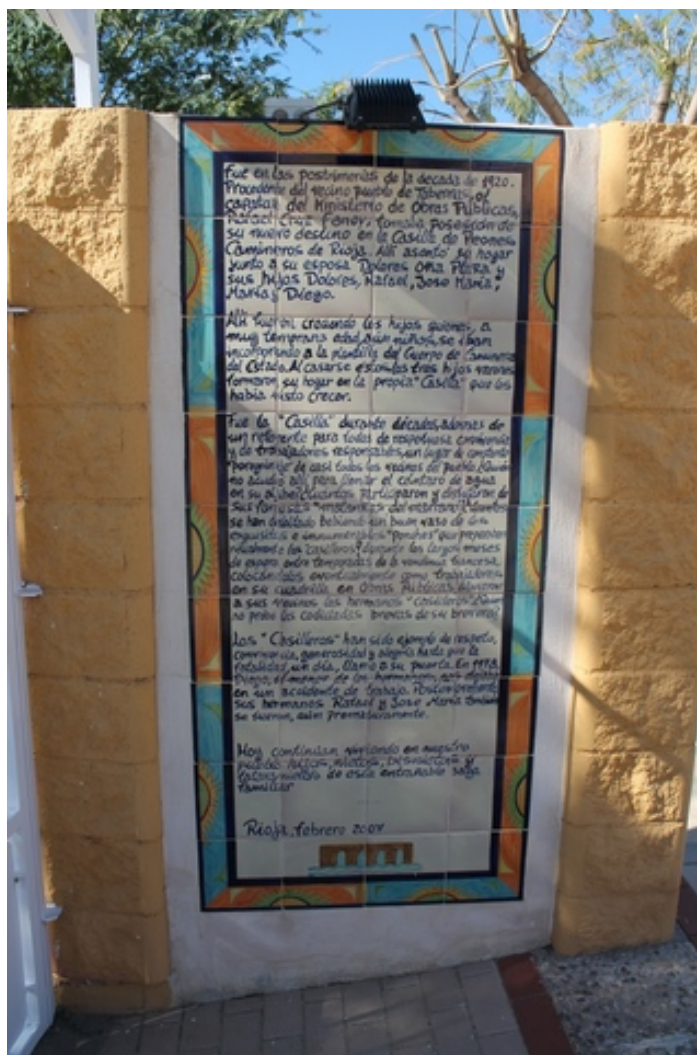 Fue en las postrimerías de la década de 1920.
Procedente del vecino pueblo de Tabernas, el
capataz del Ministerio de Obras Públicas,
Rafael Cruz Ferrer, tomaba posesión de
su nuevo destino en la Casilla de Peones
Camineros de Rioja. Allí asentó su hogar
junto a su esposa Dolores Oña Plaza y
sus hijos Dolores, Rafael, Jose María,
María y Diego.
Allí fueron creciendo los hijos quienes, a
muy temprana edad, aún niños, se iban
incorporando a la plantilla del Cuerpo de Camineros
del Estado. Al casarse estos, los tres hijos varones
formaron su hogar en la propia "Casilla" que los
había visto crecer.
Fue la "Casilla" durante décadas, además de
un referente para todos de respetuosa convivencia
y de trabajadores responsables, un lugar de constante
peregrinaje de casi todos los vecinos del pueblo ¿Quién
no acudió allí para llenar el cántaro de agua
en su aljibe; cuántos participaron y disfrutaron de
sus famosas "matanzas del marrano"; cuántos
se han deleitado bebiendo un buen vaso de los
exquisitos e innumerables "ponches" que preparaban
los casilleros? durante los largos meses
de espera entre temporadas de la vendimia francesa,
colocándolos eventualmente como trabajadores
en su cuadrilla, en Obras Públicas
a sus vecinos los hermanos "casilleros".
no probó las codiciadas brevas de su brevera?
Los "Casilleros" han sido ejemplo de respeto,
convivencia, generosidad y alegría hasta que la
fatalidad, un día, llamó a su puerta. En 1978,
Diego, el menor de los hermanos, nos dejaba
en un accidente de trabajo. Posteriormente
sus hermanos Rafael y Jose María también
se fueron, aún prematuramente.
Hoy continúan viviendo en nuestro
pueblo hijos, nietos, bisnietos y
de esta entrañable saga
familiar
Rioja, febrero 2007